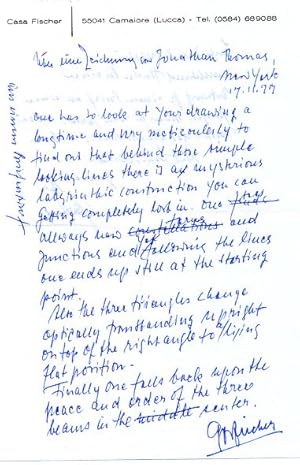 Casa Fischer
55041 Camaiore (Lucca) - Tel. (0584) 689088
Über eine Zeichnung von Jonathan Thomas,
New York
17.11.77
One has to look at your drawing a
longtime and very meticulously to
find out that behind those simple
looking lines there is a mysterious
labyrinthic construction you can
getting completely lost in. One
allways new turns and
junctions and yet following the lines
one ends up still at the starting
point.
Also the three triangles change
optically from standing upright
on top of the right angle to a lying
flat position.
Finally one falls back upon the
peace and order of the three
beams in the middle center.